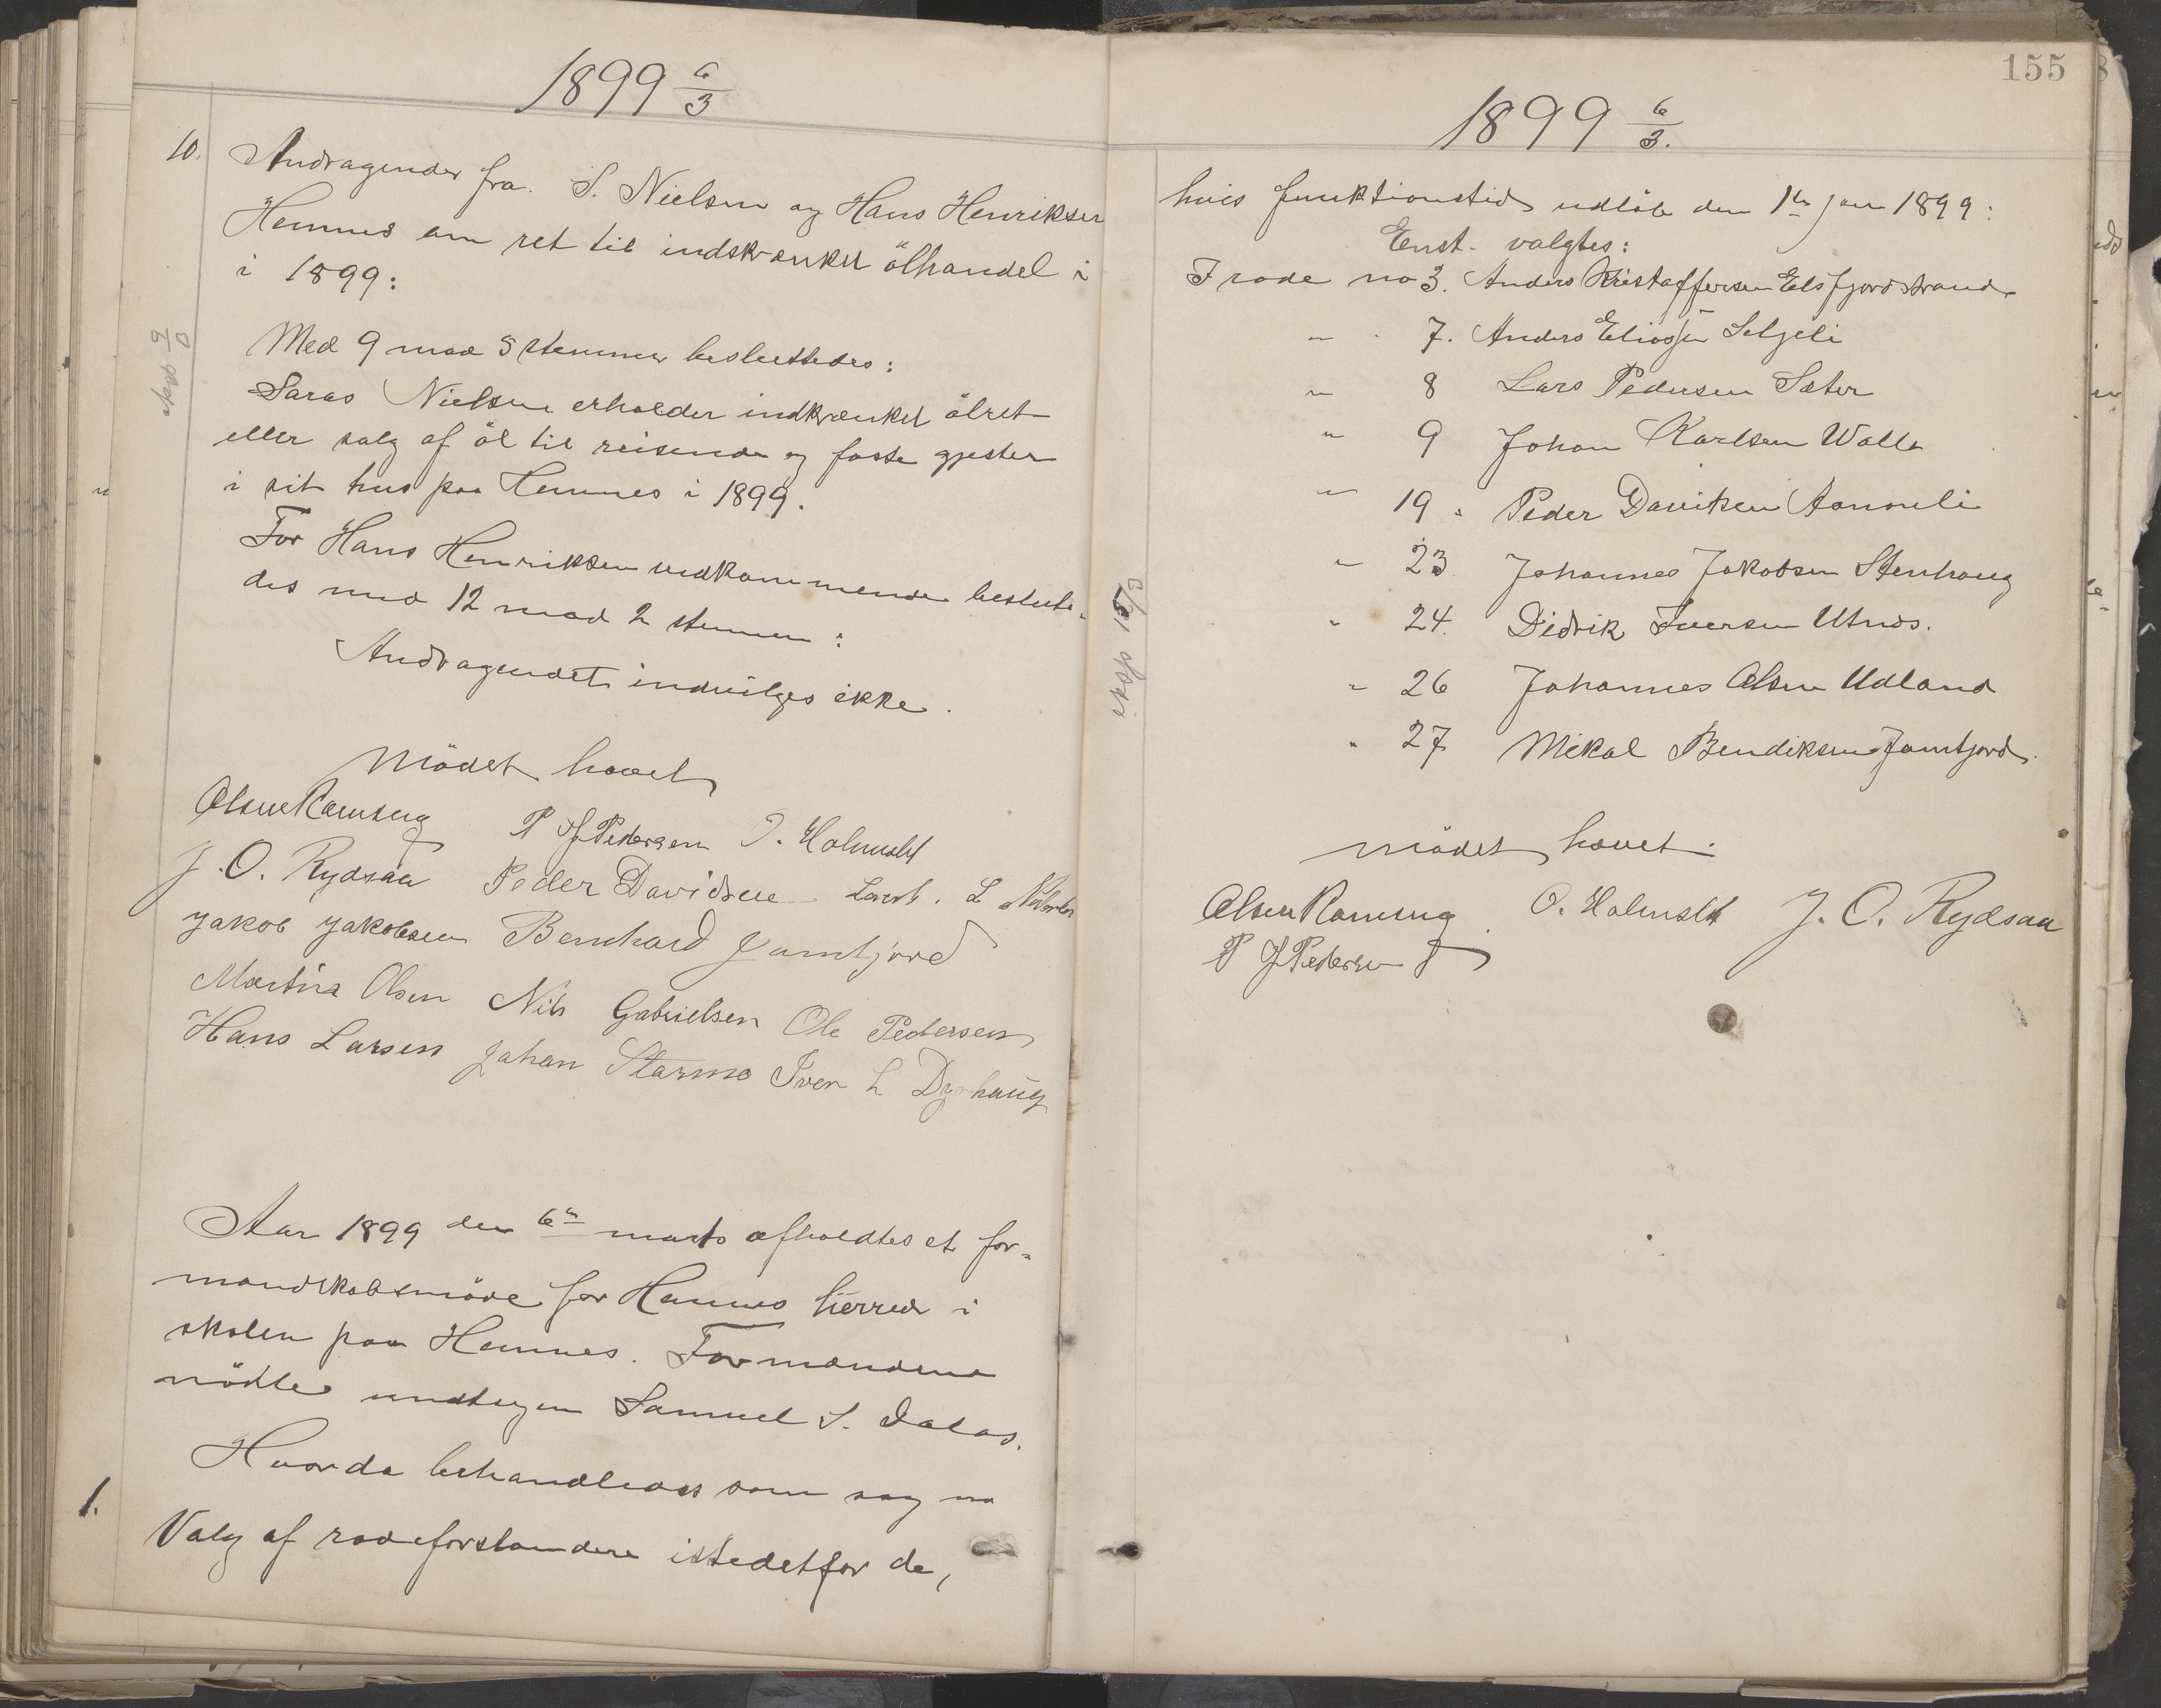 1899 6/3
10. Andragender fra S. Nielsen og Hans Henriksen
Hemnes om ret til indskrænket ölhandel i
i 1899:
Med 9 mod 5 stemmer besluttedes:
Saras Nielsen erholder indkrænket ölret
eller salg af öl til reisende og faste gjester
i sit hus paa Hemnes i 1899.
For Hans Henriksen vedkommende beslutte-
des med 12 mod 2 stemmer:
Andragendet indvilges ikke.
Mödet hævet
Olsen Ramseng P J Pedersen O. Holmslet
J. O. Rydsaa Peder Davidsen
Jakob Jakobsen Bernhard Jamtjord
Martin Olsen Nils Gabrielsen Ole Pedersen
Hans Larsen Johan Starmo Iver L Dyrhaug
Aar 1899 den 6te marts afholdtes et for-
mandskabsmöde for Hemnes herred i
skolen paa Hemnes. Formændene
mödte undtagen Samuel S. Dalos.
Hvorda behandledes som sag no
1. Valg af rodeforstandere istedetfor de,
155
1899 6/3.
hvis funktionstid udlöb den 1te jan 1899:
Enst. valgtes:
I rode no 3. Anders Kristoffersen Elsfjordstrand
" 7. Anders Eliassen Seljeli
" 8 Lars Pedersen Sæter
" 9 Johan Karlsen Walla
" 19. Peder Daviksen Aanonli
" 23 Johannes Jakobsen Stenhaug
" 24. Didrik Iversen Utnes.
" 26 Johannes Olsen Udland
" 27 Mikal Bendiksen Jamtjord.
mödet hævet.
Olsen Ramseng O. Holmslet J. O. Rydsaa
P J Pedersen